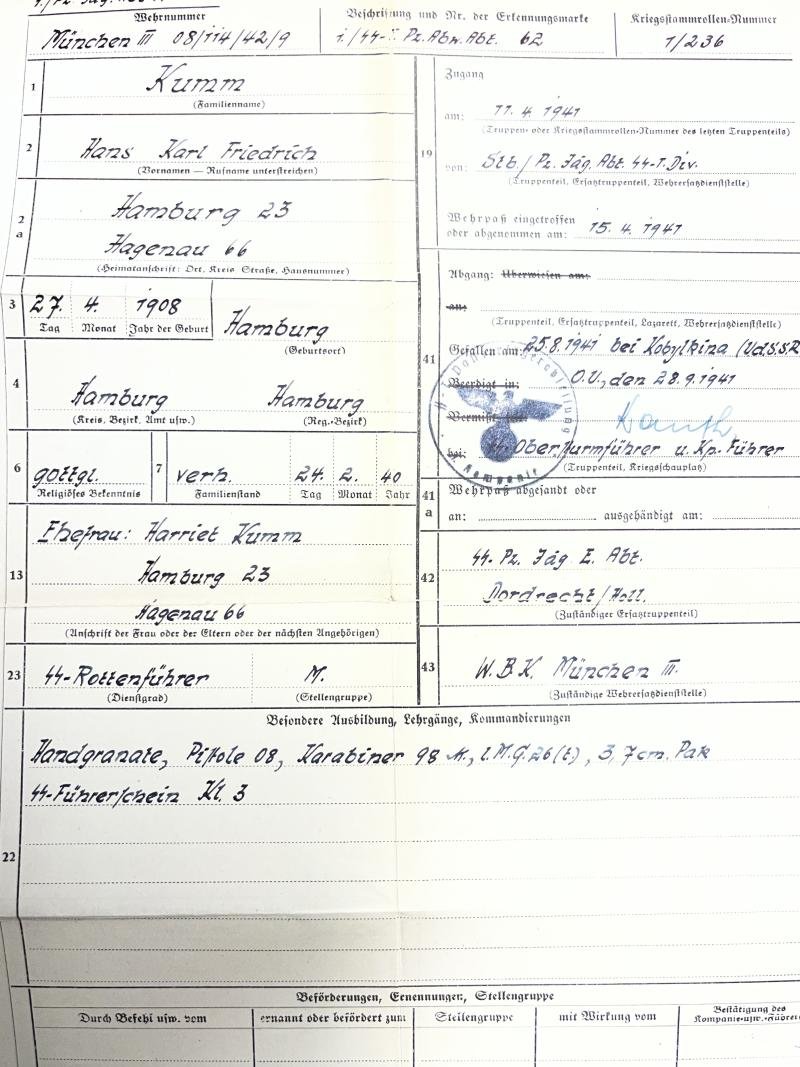 Wehrnummer
München III 08/114/42/9
Beschriftung und Nr. der Erkennungsmarke
1./SS-T. Pz. Abw. Abt. 62
Kriegsstammrollen-Nummer
1/236
1
Kumm
(Familienname)
2
Hans Karl Friedrich
(Vornamen — Rufname unterstreichen)
2 a
Hamburg 23
Hagenau 66
(Heimatanschrift: Ort, Kreis Straße, Hausnummer)
3
27. 4. 1908
Tag Monat Jahr der Geburt
Hamburg
(Geburtsort)
4
Hamburg
(Kreis, Bezirk, Amt usw.)
Hamburg
(Reg.-Bezirk)
6
gottgl.
Religiöses Bekenntnis
7
verh. 24. 2. 40
Familienstand Tag Monat Jahr
13
Ehefrau: Harriet Kumm
Hamburg 23
Hagenau 66
(Anschrift der Frau oder der Eltern oder der nächsten Angehörigen)
23
SS-Rottenführer
(Dienstgrad)
M.
(Stellengruppe)
19
Zugang
am: 11. 4. 1941
(Truppen- oder Kriegsstammrollen-Nummer des letzten Truppenteils)
von: Stb/Pz. Jäg. Abt. SS-T. Div.
(Truppenteil, Ersatztruppenteil, Wehrersatzdienststelle)
Wehrpaß eingetroffen
oder abgenommen am: 15. 4. 1941
41
Abgang: Überwiesen am:
an:
(Truppenteil, Ersatztruppenteil, Lazarett, Wehrersatzdienststelle)
Gefallen am: 25.8.1941 bei Kobylkina (UdSSR
Beerdigt in: O.U., den 28.9.1941
Vermißt
bei: SS-Obersturmführer u. Kp.-Führer
(Truppenteil, Kriegsschauplatz)
Kompanie
41 a
Wehrpaß abgesandt oder
an: ausgehändigt am:
42
SS-Pz. Jäg. E. Abt.
Dordrecht/Holl.
(Zuständiger Ersatztruppenteil)
43
W.B.K. München III.
(Zuständige Wehrersatzdienststelle)
22
Besondere Ausbildung, Lehrgänge, Kommandierungen
Handgranate, Pistole 08, Karabiner 98 k., l.M.G.26(t), 3,7cm. Pak
SS-Führerschein Kl. 3
Beförderungen, Ernennungen, Stellengruppe
Durch Befehl usw. vom
ernannt oder befördert zum
Stellengruppe
mit Wirkung vom
Bestätigung des
Kompanie- usw. -Führers